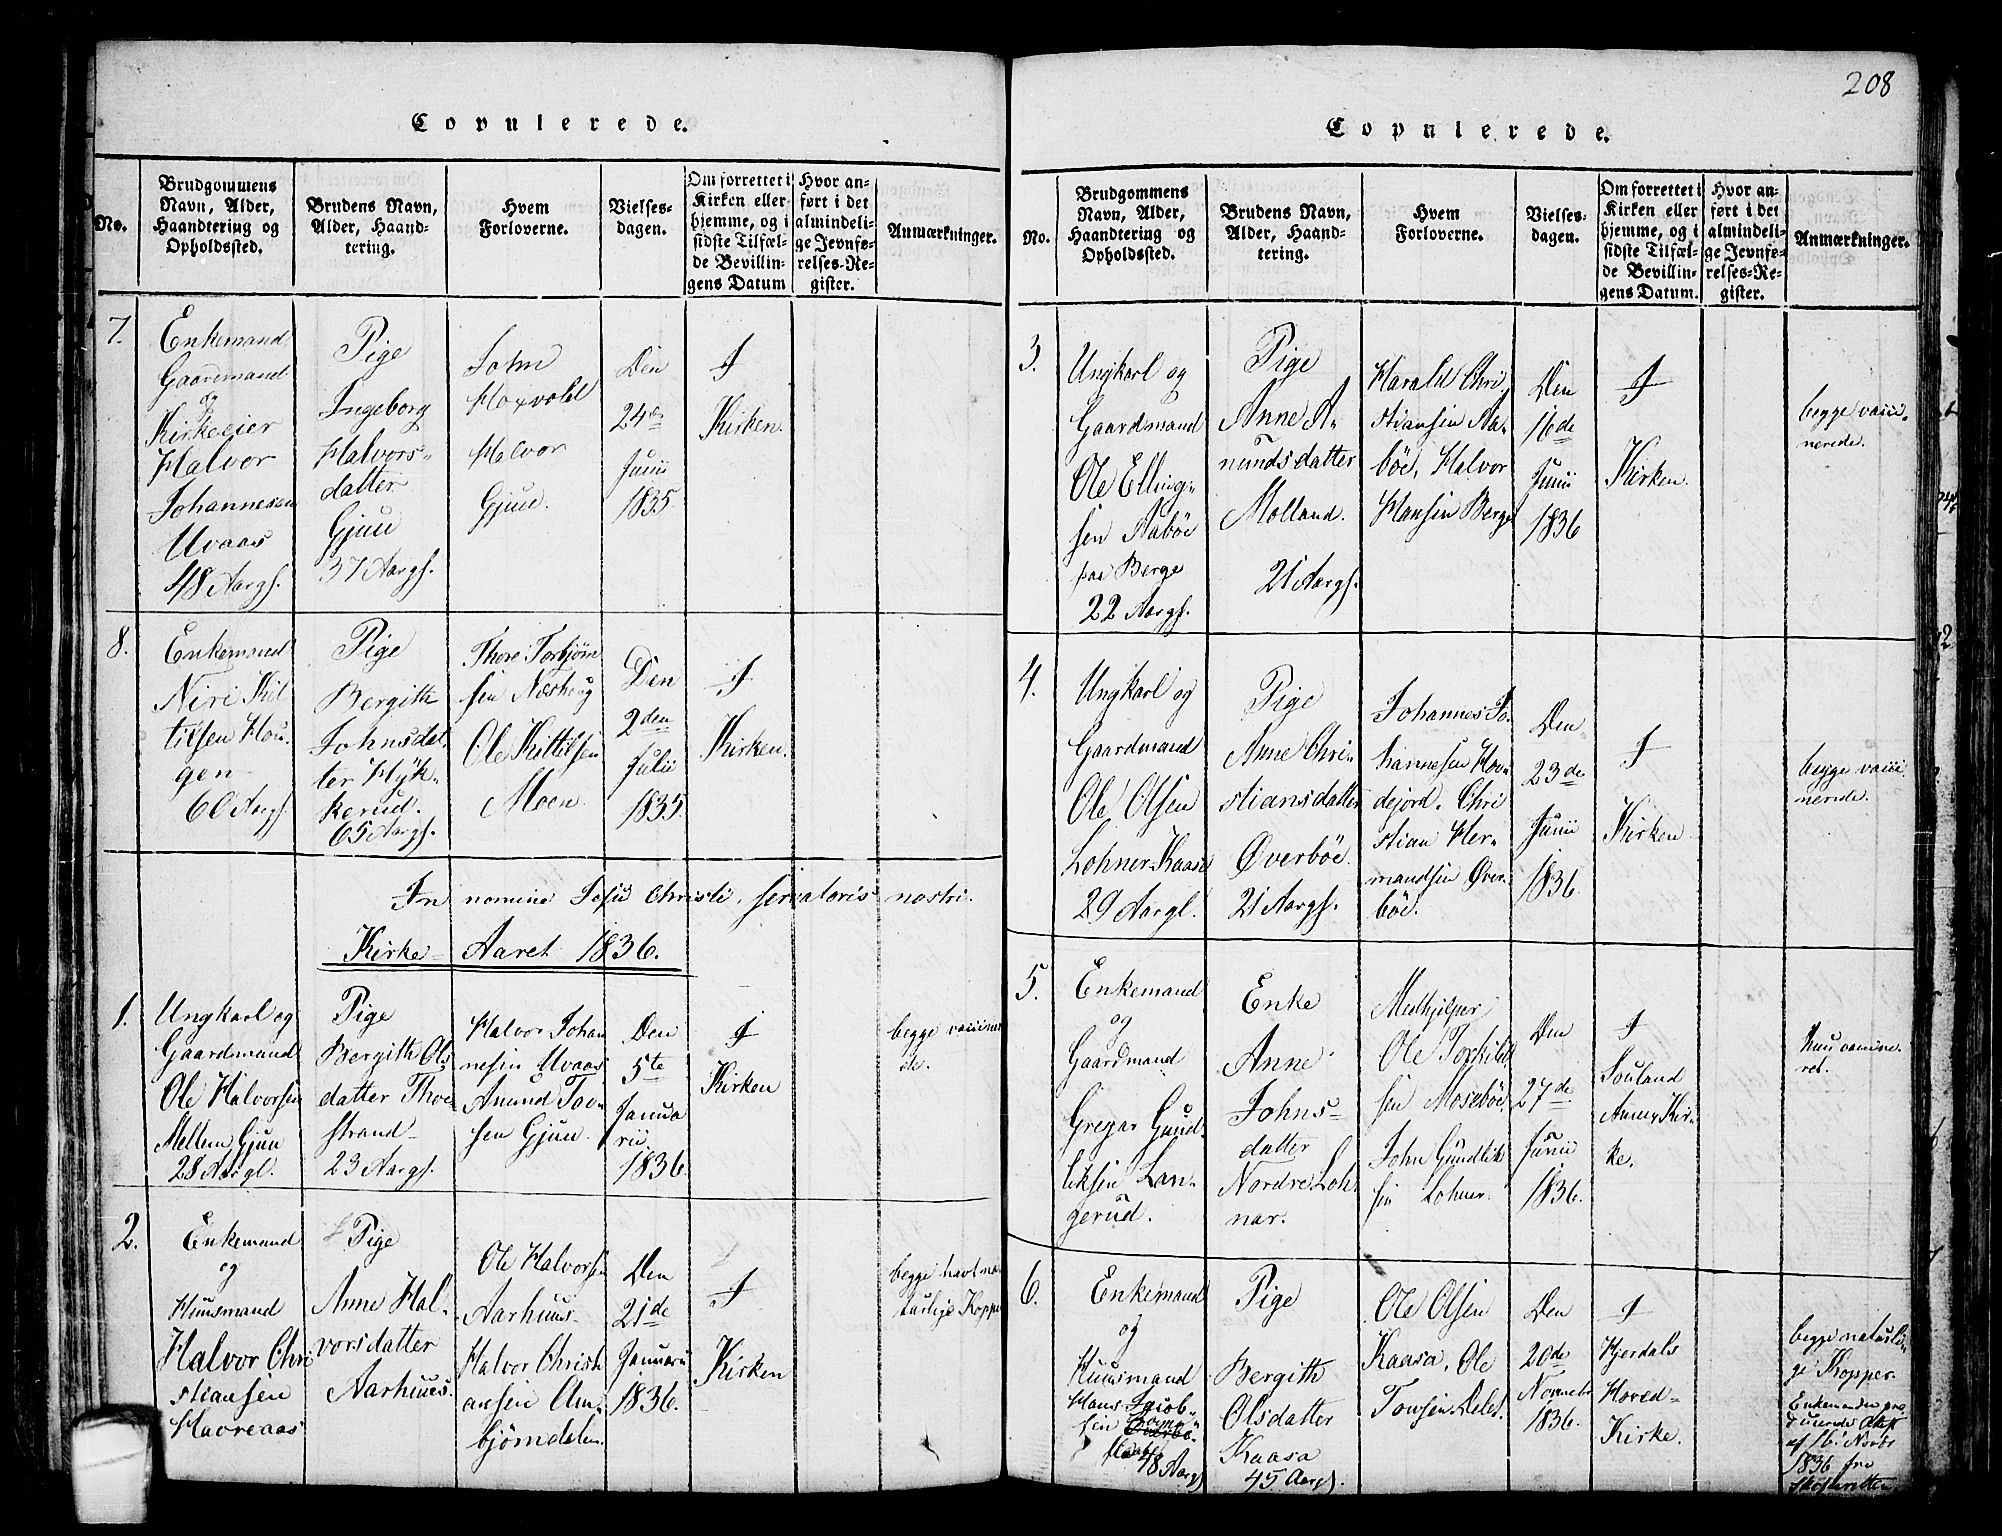 208
Copulerede.
No.
Brudgommens
Navn, Alder,
Haandtering og
Opholdssted.
Brudens Navn,
Alder, Haand-
tering.
Hvem
Forloverne.
Vielses-
dagen.
Om forrettet i
Kirken eller
hjemme, og i
sidste Tilfæl-
de Bevillin-
gens Datum
Hvor an-
ført i det
almindeli-
ge Jevnfø-
relses-Re-
gister.
Anmærkninger.
7.
Enkemand
Gaardmand
og
Kirkeeier
Halvor
Johannesen
Uvaas
48 Aargs.
Pige
Ingeborg
Halvors-
datter
Gjuu
37 Aargs.
John
Haxvold
Halvor
Gjuu.
Den
24de
Junii
1835.
I
Kirken.
8.
Enkemand
Niri Kit
tilsen Hou-
gen
60 Aargs.
Pige
Bergith
Johnsdat-
ter Hyk-
kerud.
65 Aargs.
Thore Torbjørn
sen Næshoug
Ole Kittilsen
Moen.
Den
2den
Julii
1835.
I
Kirken.
In nomine Jesu Christi, servatoris nostri.
Kirke-Aaret 1836.
1.
Ungkarl og
Gaardmand
Ole Halvorsen
Mellem Gjuu
28 Aargl.
Pige
Bergith Ols
datter Thve
strand
23 Aargs.
Halvor Johan
nesen Uvaas
Anund Tov-
sen Gjuu.
Den
5te
Janua
rii
1836.
I
Kirken
begge vaccinere
de.
2.
Enkemand
og
Huusmand
Halvor Chri
stiansen
Havreaas
Pige
Anne Hal-
vorsdatter
Aarhuus.
Ole Halvorsen
Aarhuus
Halvor Christi
ansen Am-
bjørndalen.
Den
21de
Januarii
1836.
I
Kirken
begge havt na-
turlige Kopper
Copulerede.
No.
Brudgommens
Navn, Alder,
Haandtering og
Opholdssted.
Brudens Navn,
Alder, Haand-
tering.
Hvem
Forloverne.
Vielses-
dagen.
Om forrettet i
Kirken eller
hjemme, og i
sidste Tilfæl-
de Bevillin-
gens Datum.
Hvor an-
ført i det
almindeli-
ge Jevnfø-
relses-Re-
gister.
Anmærkninger.
3.
Ungkarl og
Gaardmand
Ole Elling-
sen Aabøe
paa Berge
22 Aargs.
Pige
Anne A-
nundsdatter
Molland.
21 Aargs.
Harald Chri
stiansen Aa-
bøe, Halvor
Hansen Berge
Den
16de
Junii
1836
I
Kirken.
begge vacci-
nerede.
4.
Ungkarl og
Gaardmand
Ole Olsen
Lohner Kaasa
29 Aargl.
Pige
Anne Chri-
stiansdatter
Øverbøe.
21 Aargs.
Johannes Jo-
hannesen Hov-
dejord. Chri
stian Her-
mandsen Øver-
bøe.
Den
23de
Junii
1836.
I
Kirken
begge vacci
nerede.
5.
Enkemand
og
Gaardmand
Gregar Gund-
liksen Lan-
gerud.
Enke
Anne
Johns-
datter
Nordre Loh-
nar.
Medhjelper
Ole Torkild
sen Mosebøe
John Gundlik
sen Lohner.
Den
27de
Junii
1836.
I
Souland
Annex Kir-
ke.
Hun vaccine-
ret.
6.
Enkemand
og
Huusmand
Hans Jacob-
sen
48 Aargs
Pige
Bergith
Olsdatter
Kaasa
45 Aargs.
Ole Olsen
Kaasa, Ole
Tovsen
Den
20de
Novembr
1836.
I
Hjerdals
Hoved-
Kirke.
begge naturli-
ge Kopper.
Enkemanden pro
ducerede Attest
af 16 Novbr
1836 fra
Skifteretten